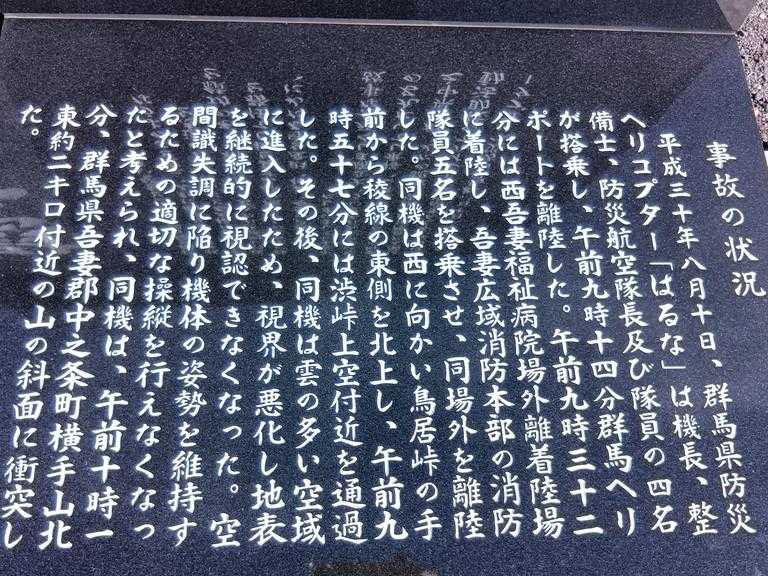 事故の状況
平成三十年八月十日、群馬県防災
ヘリコプター「はるな」は機長、整
備士、防災航空隊長及び隊員の四名
が搭乗し、午前九時十四分群馬ヘリ
ポートを離陸した。午前九時三十二
分には西吾妻福祉病院場外離着陸場
に着陸し、吾妻広域消防本部の消防
隊員五名を搭乗させ、同場外を離陸
した。同機は西に向かい鳥居峠の手
前から稜線の東側を北上し、午前九
時五十七分には渋峠上空付近を通過
した。その後、同機は雲の多い空域
に進入したため、視界が悪化し地表
を継続的に視認できなくなった。空
間識失調に陥り機体の姿勢を維持す
るための適切な操縦を行えなくなっ
たと考えられ、同機は、午前十時一
分、群馬県吾妻郡中之条町横手山北
東約二キロ付近の山の斜面に衝突し
た。